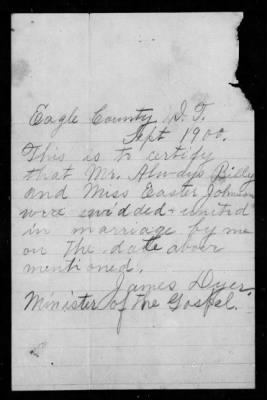 Eagle County I.T.
Sept 1900.
This is to certify
that Mr. Alwdys Billy
and Miss Easter Johnson
were wedded & united
in marriage by me
on the date above
mentioned.
James Dyer.
Minister of the Gospel.